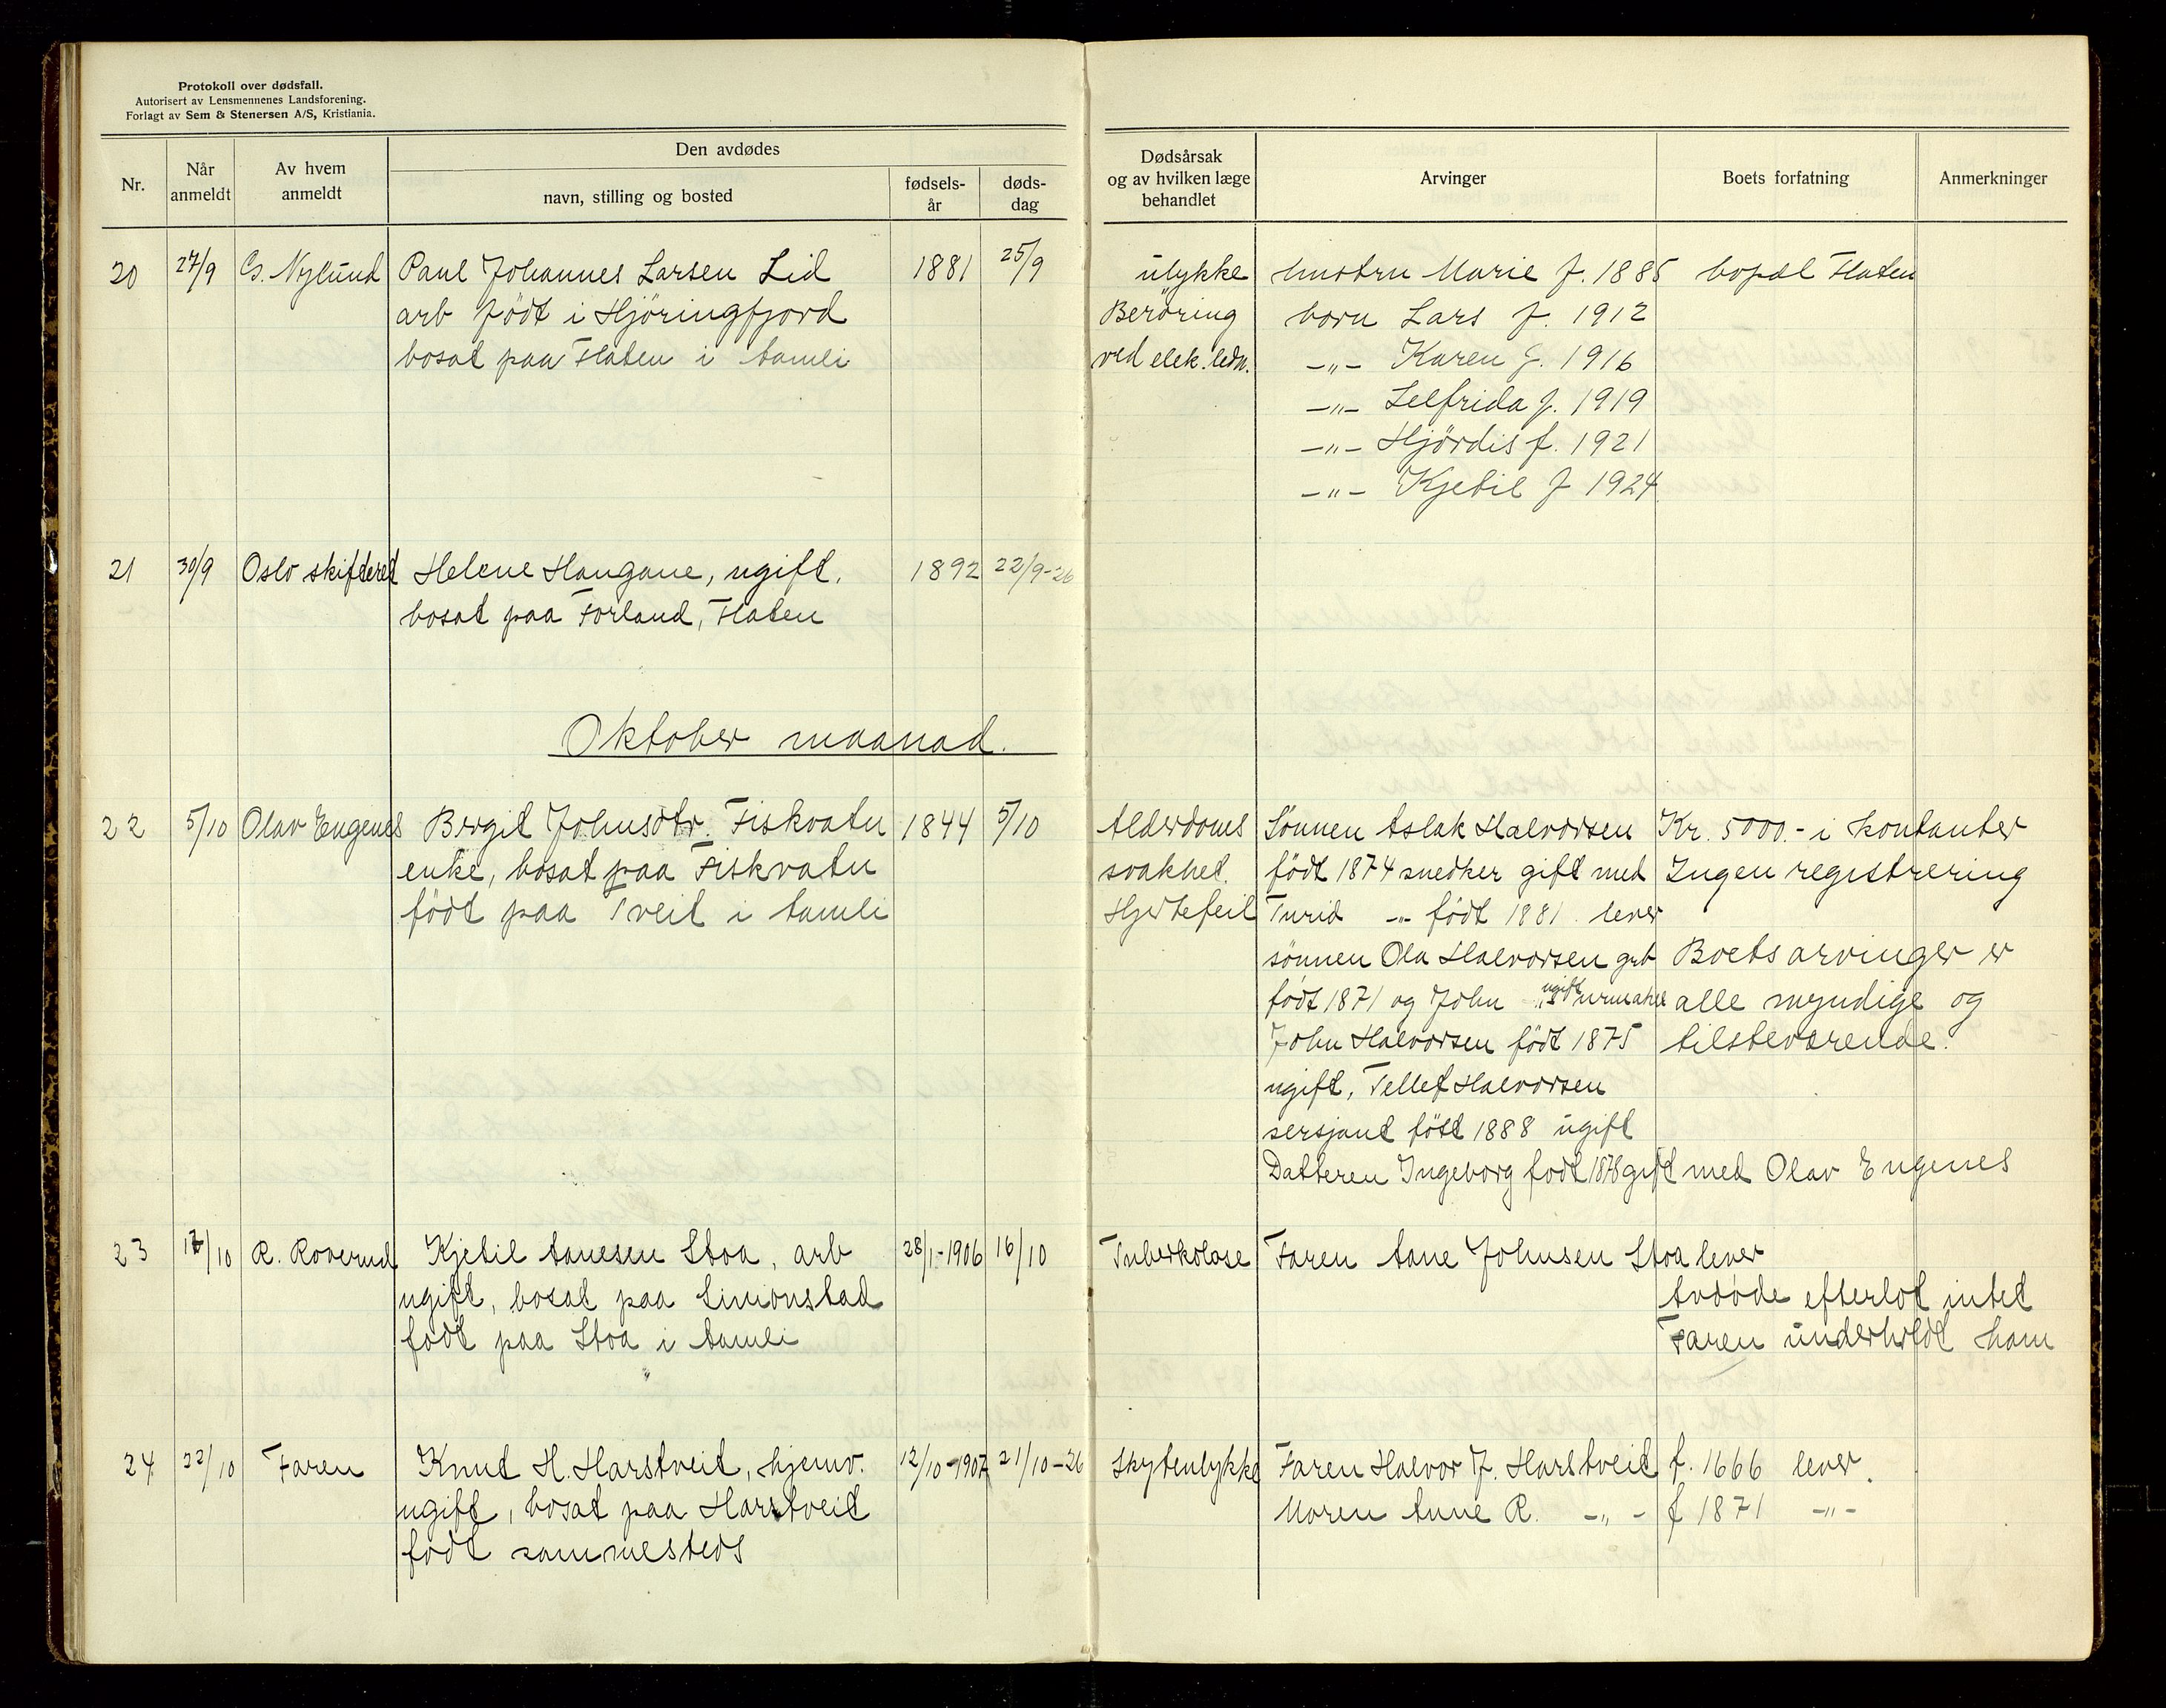 Protokoll over dødsfall.
Autorisert av Lensmennenes Landsforening.
Forlagt av Sem & Stenersen A/S, Kristiania.
Nr.
Når anmeldt
Av hvem anmeldt
Den avdødes
navn, stilling og bosted
fødsels-år
døds-dag
Dødsårsak og av hvilken læge behandlet
Arvinger
Boets forfatning
Anmerkninger
20 27/9 G. Nylund Paul Johannes Larsen Lid 1881 25/9
arb født i Hjöringfjord
bosat paa Flaten i Aamli
ulykke
Berøring
ved elek. ledn.
hustru Marie f. 1885 bopæl Flaten
born Lars f. 1912
-"- Karen f. 1916
-"- f. 1919
-"- Hjördis f. 1921
-"- Kjetil f 1924
21 30/9 Oslo skifteret Helene Haugane, ugift, 1892 22/9-26
bosat paa Forland, Flaten
Oktober maanad.
22 5/10 Olav Engenes Bergit Johnsdtr. Fiskvatn 1844 5/10
enke, bosat paa Fiskvatn
født paa Tveit i Aamli
Alderdoms
svakhet.
Hjertefeil
Sønnen Aslak Halvorsen
født 1874 snedker gift med
Turid -"- født 1881. lever
sønnen Ola Halvorsen grb
født 1871 og John ugift urmaker
John Halvorsen født 1875
ugift, Tellef Halvorsen
sersjant föst 1888 ugift
Datteren Ingeborg født 1878 gift med Olav Engenes
Kr. 5000.- i kontanter
Ingen registrering
Boets arvinger er
alle myndige og
tilsteværende.
23 17/10 R. Roverud Kjetil Aanesen Stoa, arb 28/1-1906 16/10
ugift, bosat paa Simonstad
født paa Stoa i Aamli
Tuberkolose Faren Aane Johnsen Stoa lever
Avdøde efterlot intet
Faren underholdt ham
24 22/10 Faren Knut H. Harstveit, hjemv. 12/10-1907 21/10-26
ugift, bosat paa Harstveit
født sammesteds
Skyteulykke Faren Halvor J. Harstveit f. 1666 lever.
Moren Anne R. -"- f 1871 -"-